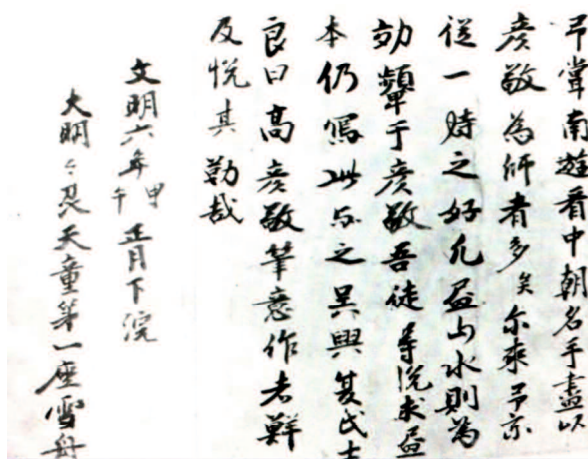 予甞南遊看中朝名手畫以
彦敬為師者多矣尓來予亦
從一時之好凡画山水則為
効顰于彦敬吾徒等悦求画
本仍寫此与之呉興夏氏士
良曰高彦敬筆意作者鮮
及悦其勤哉
文明六年甲午正月下浣
大明々忍天童第一座雪舟